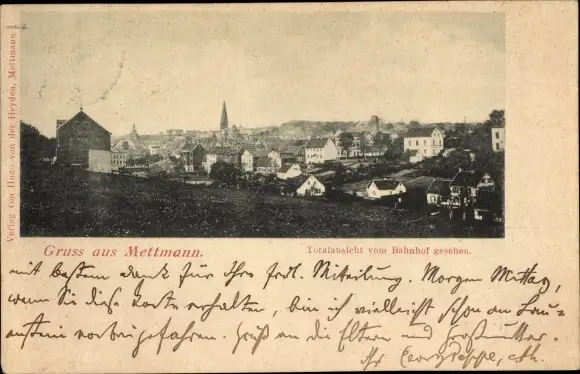 Verlag von Hugo von der Heyden, Mettmann.
Gruss aus Mettmann.
Totalansicht vom Bahnhof gesehen.
mit bestem dank für Ihre frdl. Mitteilung. Morgen Mittag,
wann Sie diese Karte erhalten, bin ich vielleicht schon an Lau-
enstein vorbeigefahren. Gruß an die Eltern und Großmutter.
Ihr Georg